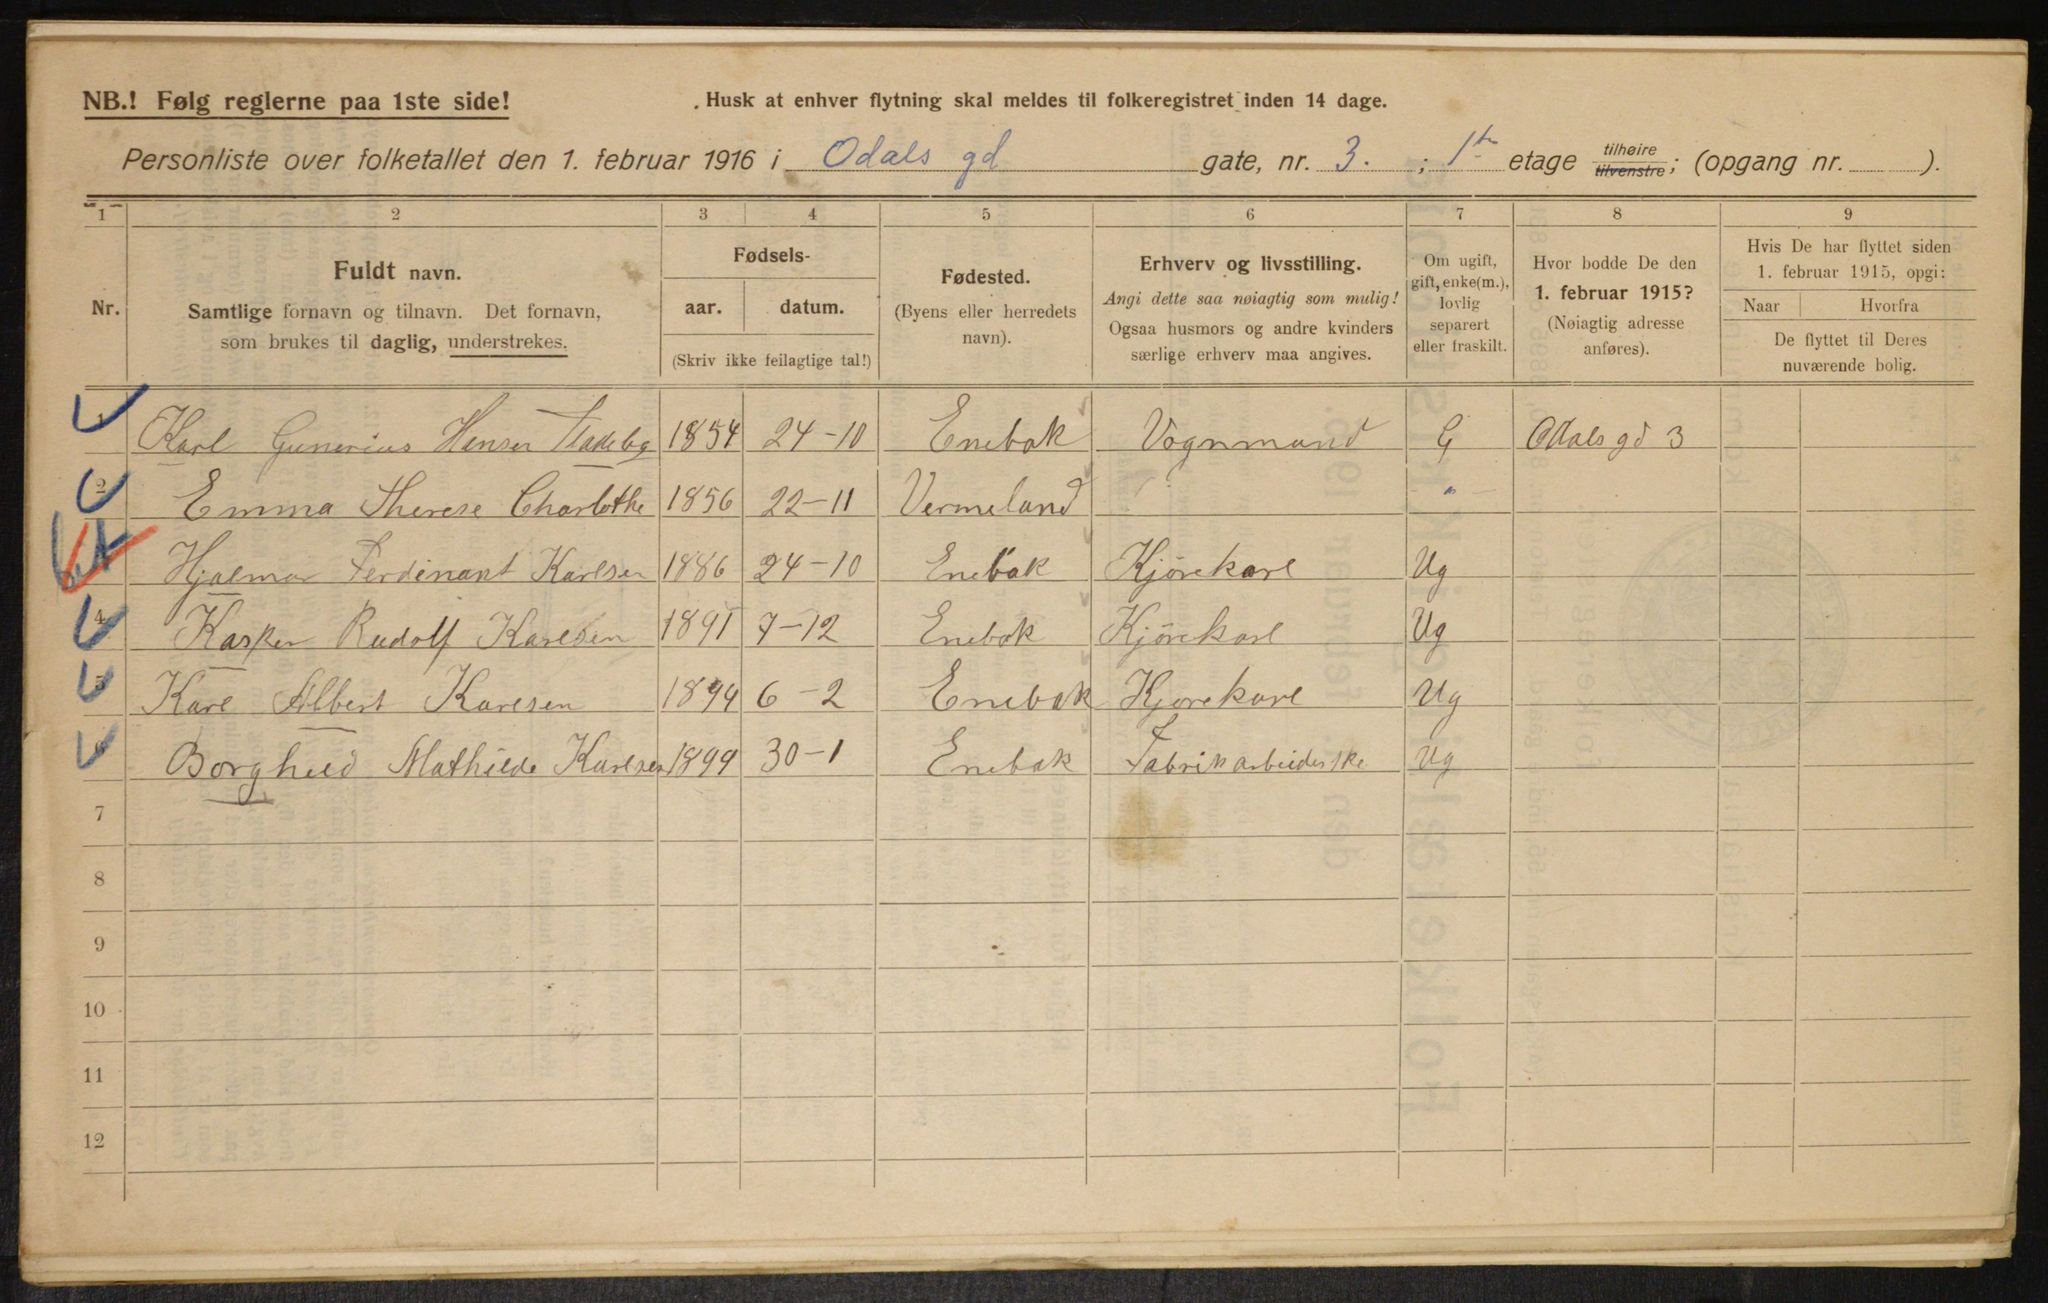 NB.! Følg reglerne paa 1ste side! Husk at enhver flytning skal meldes til folkeregistret inden 14 dage.
Personliste over folketallet den 1. februar 1916 i Odals gd gate, nr. 3. ; 1ste etage tilhøire tilvenstre; (opgang nr. ).
1 2 3 4 5 6 7 8 9
Nr. Fuldt navn. Samtlige fornavn og tilnavn. Det fornavn, som brukes til daglig, understrekes.
Fødsels- aar. datum. (Skriv ikke feilagtige tal!)
Fødested. (Byens eller herredets navn).
Erhverv og livsstilling. Angi dette saa nøiagtig som mulig! Ogsaa husmors og andre kvinders særlige erhverv maa angives.
Om ugift, gift, enke(m.), lovlig separert eller fraskilt.
Hvor bodde De den 1. februar 1915? (Nøiagtig adresse anføres).
Hvis De har flyttet siden 1. februar 1915, opgi: Naar Hvorfra De flyttet til Deres nuværende bolig.
1 Karl Gunerius Hansen 1854 24-10 Enebak Vognmand G Odals gd 3
2 Emma Therese Charlothe 1856 22-11 Vermeland "
Hjalmar Ferdinant Karlsen 1886 24-10 Enebak Kjørekarl Ug
4 Kasper Rudolf Karlsen 1891 7-12 Enebak Kjørekarl Ug
5 Karl Albert Karlsen 1894 6-2 Enebak Kjørekarl Ug
6 Borghild Mathilde Karlsen 1899 30-1 Enebak Fabrikarbeiderske Ug
7
8
9
10
11
12